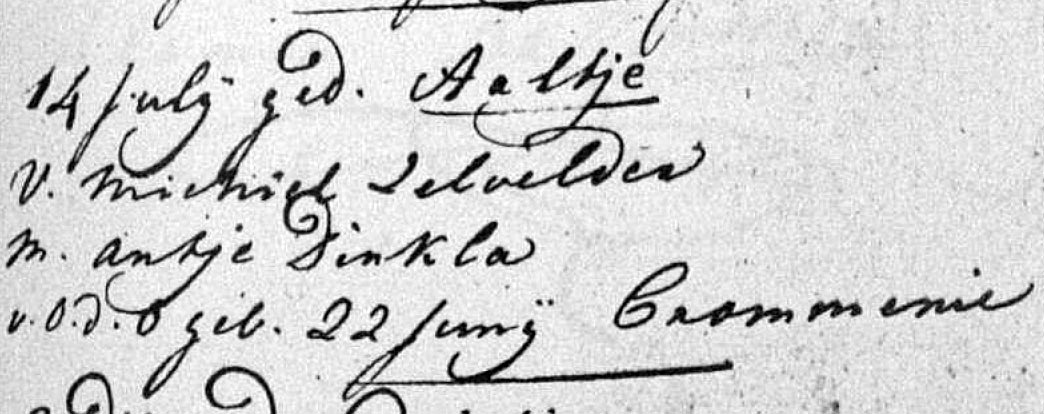 14 julÿ ged. Aaltje
V. Michiel Zelvelder
M. Antje Dinkla
v.O.d.O geb. 22 junÿ Crommenie